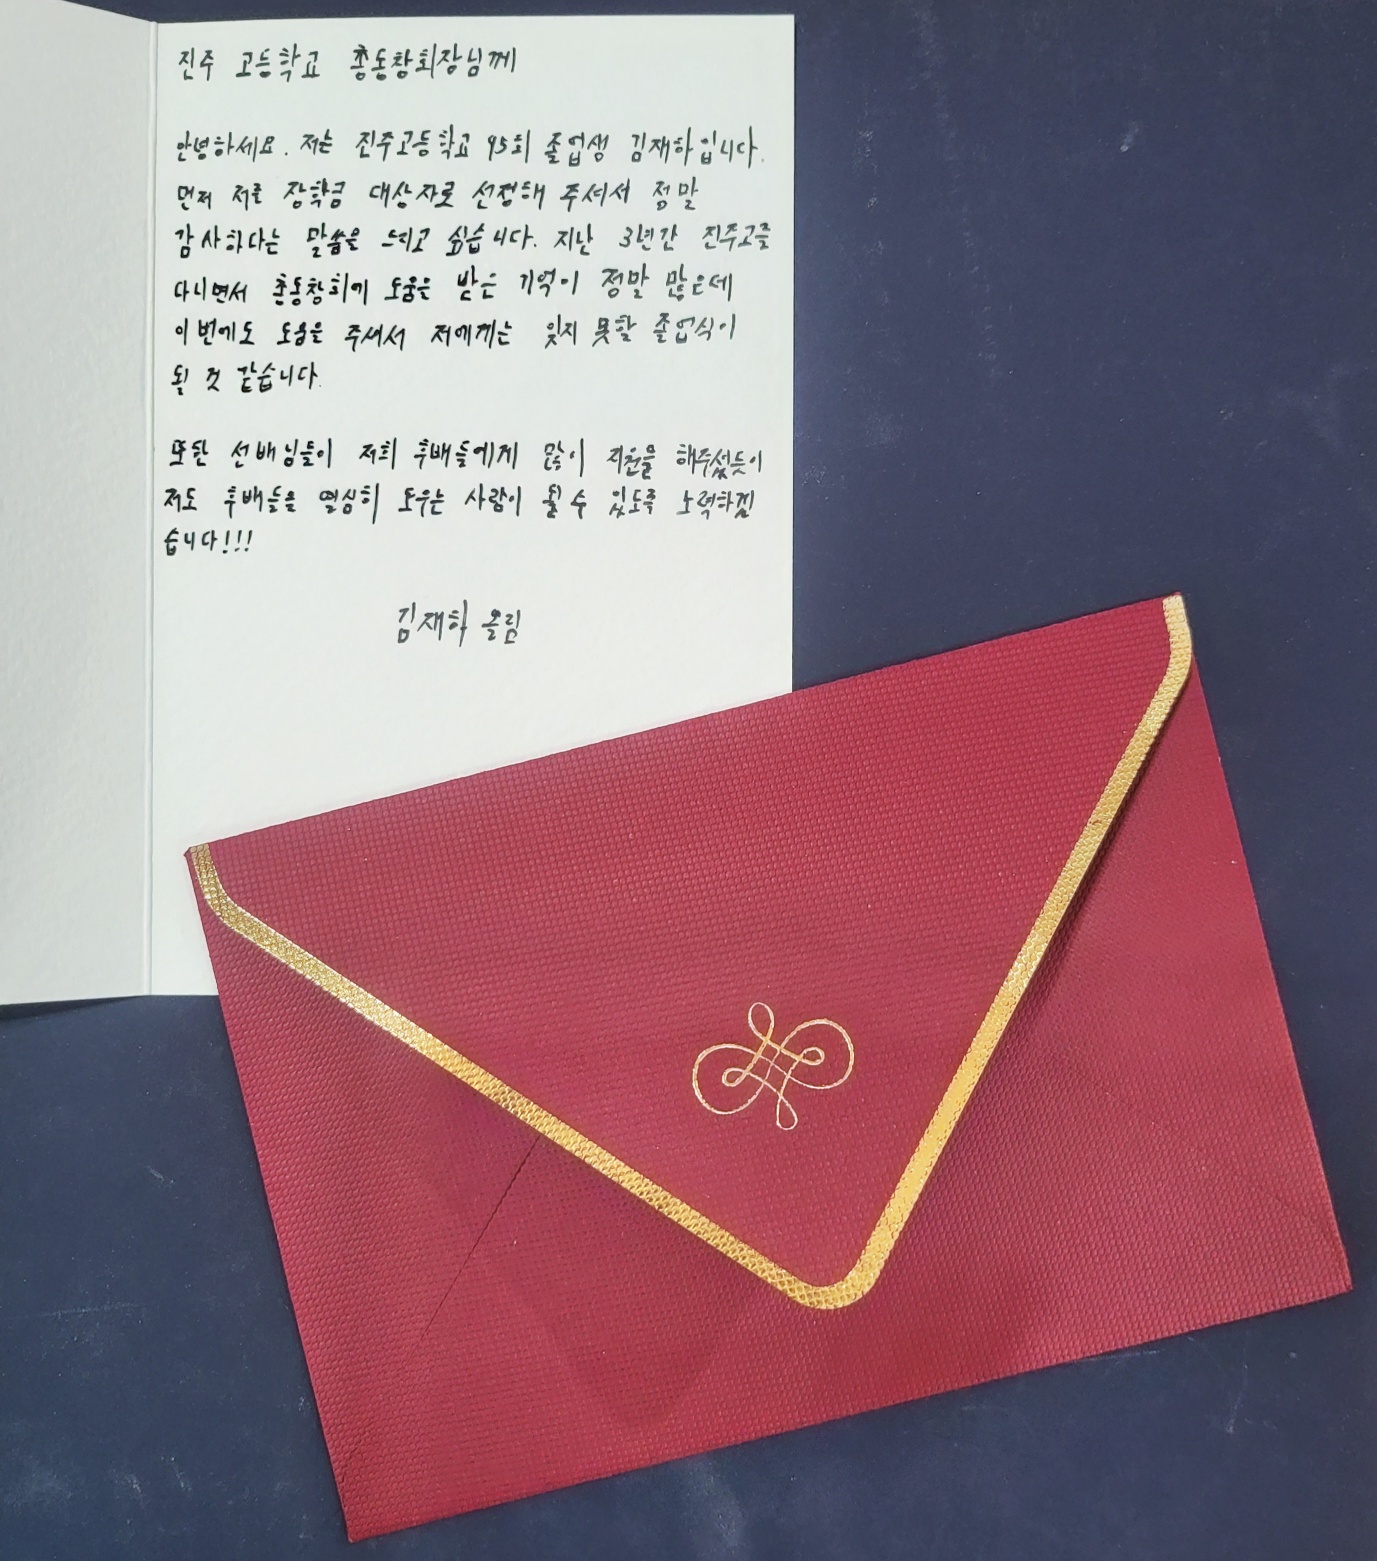 진주 고등학교 총동창회장님께
안녕하세요. 저는 진주고등학교 95회 졸업생 김재하입니다.
먼저 저를 장학금 대상자로 선정해 주셔서 정말
감사하다는 말씀을 드리고 싶습니다. 지난 3년간 진주고를
다니면서 총동창회에 도움을 받은 기억이 정말 많은데
이번에도 도움을 주셔서 저에게는 잊지 못할 졸업식이
될 것 같습니다.
또한 선배님들이 저희 후배들에게 많이 지원을 해주셨듯이
저도 후배들을 열심히 도우는 사람이 될 수 있도록 노력하겠
습니다!!!
김재하 올림